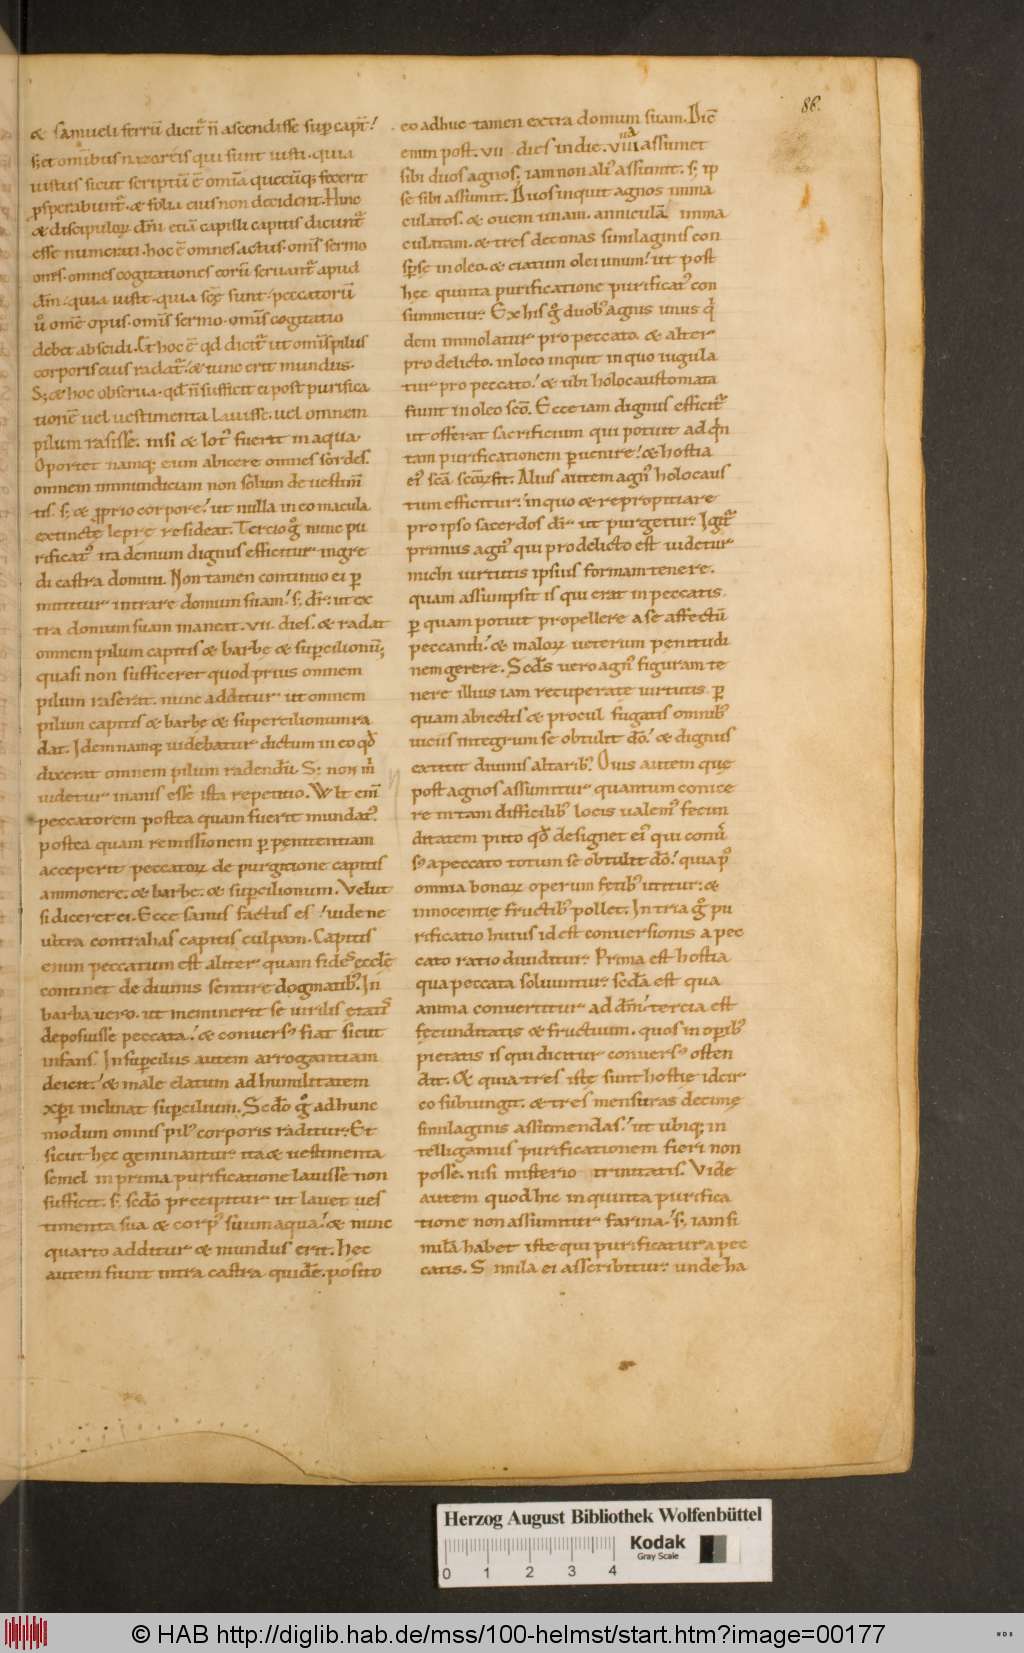 & samueli ferrū dicit᷑ n̄ ascendisse sup capit!
S; et om̄ibus nazoreis qui sunt iusti · quia
iustus sicut scriptū ē omīa quecūq; fecerit
ꝓsperabunt᷑ · & folia eius non decident. Hinc
& discipuloꝝ dn̄i etiā capilli capitis dicunt᷑
esse numerati · hoc ē omnes actus · om̄is sermo
om̄s · omnes cogitationes eorū seruant᷑ apud
dn̄m · quia iusti · quia scī sunt · peccatorū
u̾o om̄e opus · om̄is sermo · om̄is cogitatio
debet abscidi. Et hoc ē qd̄ dicit᷑ ut om̄is pilus
corporis eius radat᷑. & tunc erit mundus ·
S; & hoc obserua · qd̄ n̄ sufficit ei post purifica
tionē uel uestimenta lauisse · uel omnem
pilum rasisse. nisi & lot᷒ fuerit in aqua.
Oportet namq; eum abicere omnes sordes.
omnem inmundiciam non solum de uestim̄
tis. s; & ꝓprio corpore! ut nulla in eo macula
extincte lepre resideat. Tercio g̊ nunc pu
rificat᷒ ita demum dignus efficitur ingre
di castra domini. Non tamen continuo ei ꝑ
mittitur intrare domum suam! s; dr̄ · ut ex
tra domum suam maneat. vii. dies. & radat
omnem pilum capitis & barbe & supciliorum;
quasi non sufficeret quod prius omnem
pilum raserat. nunc additur ut omnem
pilum capitis & barbe & superciliorum ra
dat. Idem namq; uidebatur dictum in eo qd̄
dixerat omnem pilum radendū. S; non m̄
uidetur inanis esse ista repetitio. Vult eni̅
peccatorem postea quam fuerit mundat᷒.
postea quam remissionem ꝑ penitentiam
acceperit peccatoꝝ de purgatione capitis
ammonere. & barbe. & supciliorum. Velut
si diceret ei. Ecce sanus factus es! uide ne
ultra contrahas capitis culpam. Capitis
enim peccatum est aliter quam fides eccle
continet de diuinis sentire dogmatib᷒. In
barba uero. ut meminerit se uirilis etatis
deposuisse peccata! & conuers᷒ fiat sicut
infans. In supcilus autem arrogantiam
deicit! & male elatum ad humilitatem
xp̄i inclinat supcilium. Sedo g̊ adhunc
modum omnis pil᷒ corporis raditur. Et
sicut hec geminantur ita & uestimenta
semel in prima purificatione lauisse non
sufficit. s; sedo precipitur ut lauet ues
timenta sua & corp᷒ suum aqua! & nunc
quarto additur & mundus erit. Hec
autem fiunt intra castra quidē. posito
86.
eo adhuc tamen extra domum suam. Dic̄
enim post. vii. dies in die. viii.a assumet
sibi duos agnos; iam non ali᷒ assumit. s; ip
se sibi assumit. Duos inquit agnos inma
culatos. & ouem unam. anniculā inma
culatam. & tres decimas similaginis con
sp̄se in oleo. & ciatum olei unum! ut post
hec quinta purificatione purificat᷒ con
summetur. Ex his g̊ duob᷒ agnis unus q̾
dem immolatur pro peccato. & alter
pro delicto. in loco inquit in quo iugula
tur pro peccato! & ubi holocaustomata
fiunt in loco scō. Ecce iam dignus efficit᷑
ut offerat sacrificium qui potuit ad q̾n
tam purificationem ꝑuenire! & hostia
ei᷒ scā scōꝝ fit. Alius autem agn᷒ holocaus
tum efficitur! in quo & repropitiare
pro ipso sacerdos dr̄ ut purgetur. Igit᷑
primus agn᷒ qui pro delicto est uidetur
michi uirtutis ipsius formam tenere.
quam assumpsit is qui erat in peccatis
ꝑ quam potuit propellere a se affectū
peccandi! & maloꝝ ueterum penitudi
nem gerere. Secds uero agn᷒ figuram te
nere illius iam recuperate uirtutis ꝑ
quam abiectis & procul fugatis omnib᷒
uiciis integrum se obtulit dō! & dignus
extitit diuinis altarib᷒. Ouis autem que
post agnos assumitur quantum conice
re in tam difficilib᷒ locis ualem᷒ fecun
ditatem puto qd̄ designet ei᷒ qui conu̾
s᷒ a peccato totum se obtulit dō! quia p᷒
omnia bonoꝝ operum fetib᷒ utitur. &
innocentie fructib᷒ pollet. In tria g̊ pu
rificatio huius id est conuersionis a pec
cato ratio diuiditur. Prima est hostia
qua peccata soluuntur. secda est qua
anima conuertitur ad dm̄! tercia est
fecunditatis & fructuum. quos in opib᷒
pietatis is qui dicitur conuers᷒ osten
dit. Et quia tres iste sunt hostie idcir
co subiungit. & tres mensuras decime
similaginis assumendas! ut ubiq; in
telligamus purificationem fieri non
posse. nisi misterio trinitatis. Vide
autem quod hic in quinta purifica
tione non assumitur farina! s; iam si
milā habet iste qui purificatur a pec
catis. Simila ei asscribitur unde ha
Herzog August Bibliothek Wolfenbüttel
0 1 2 3 4
Kodak
Gray Scale
© HAB http://diglib.hab.de/mss/100-helmst/start.htm?image=00177